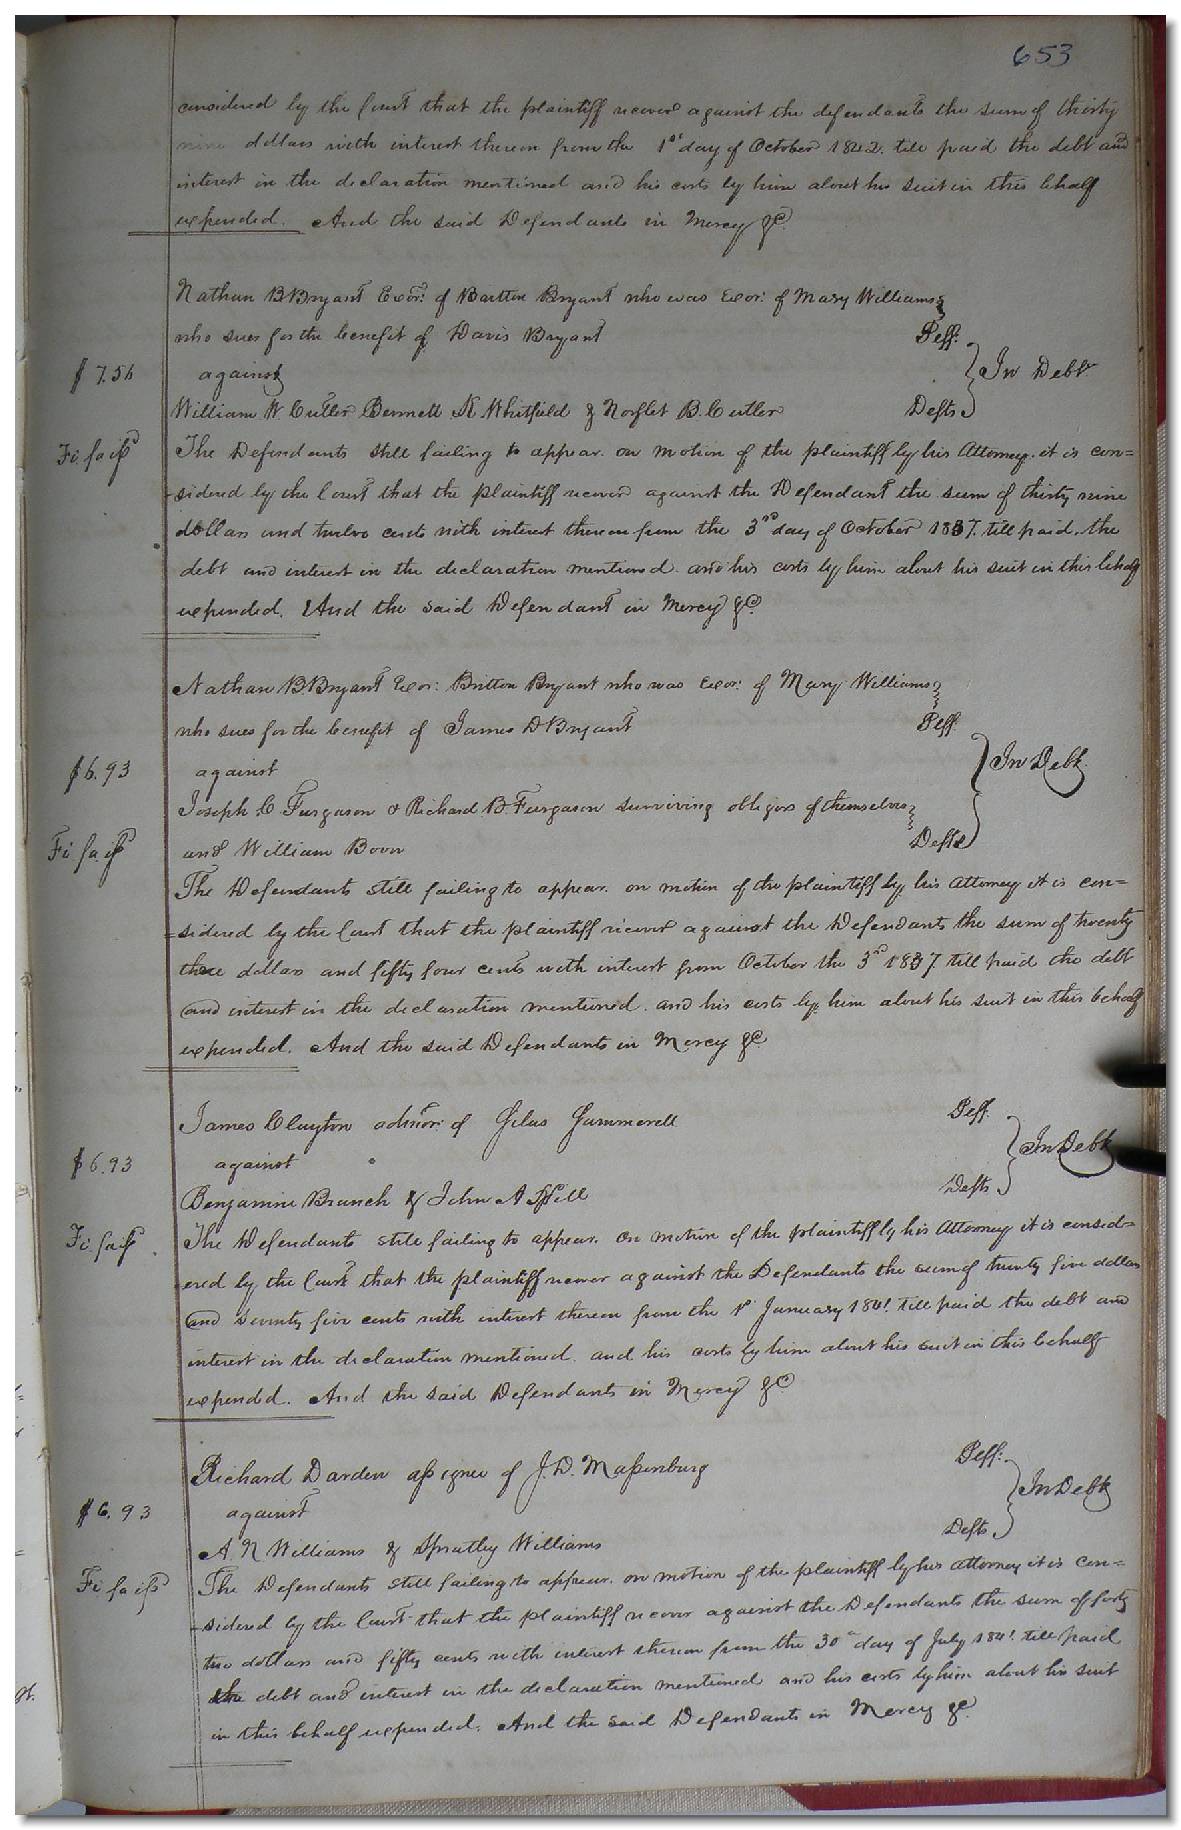 653
considered by the Court that the plaintiff recover against the defendants the sum of thirty
nine dollars with interest thereon from the 1st day of October 1842. till paid the debt and
interest in the declaration mentioned and his costs by him about his suit in this behalf
expended. And the said Defendants in Mercy &c.
Nathan B Bryant Exor. of Britton Bryant who was Exor. of Mary Williams
who sues for the benefit of Davis Bryant Plff.
$ 7.56 against In Debt
William W Cutler Bennett K Whitfield & Norflet B. Cutler Defts.
Fi. fa issd
The Defendants still failing to appear. on motion of the plaintiff by his Attorney. it is con=
=sidered by the Court that the plaintiff recover against the Defendant the sum of thirty nine
dollars and twelve cents with interest thereon from the 3rd day of October 1837. till paid. the
debt and interest in the declaration mentioned. and his costs by him about his suit in this behalf
expended. And the said Defendant in Mercy &c.
Nathan B Bryant Exor: Britton Bryant who was Exor: of Mary Williams
who sues for the benefit of James D Bryant Plff
$6.93 against In Debt.
Joseph C Furgason & Richard B. Furgason surviving obligors of themselves
Fi. fa. iss and William Boon Defts
The Defendants still failing to appear. on motion of the plaintiff by his Attorney it is con=
=sidered by the Court that the plaintiff recover against the Defendants the sum of twenty
three dollars and fifty four cents with interest from October the 3rd 1837. till paid the debt
and interest in the declaration mentioned. and his costs by him about his suit in this behalf
expended. And the said Defendants in Mercy &c.
James Clayton admor: of Silas Summerell Plff.
$6.93 against In Debt
Benjamin Branch & John A Spill Defts
Fi. fa iss
The Defendants still failing to appear. on motion of the plaintiff by his Attorney it is consid=
=ered by the Court that the plaintiff recover against the Defendants the sum of twenty five dollars
and seventy five cents with interest thereon from the 1st January 1841. till paid the debt and
interest in the declaration mentioned. and his costs by him about his suit in this behalf
expended. And the said Defendants in Mercy &c
Richard Darden assignee of J. D. Massenburg Plff.
$6.93 against In Debt
A. N Williams & Spratley Williams Defts.
Fi fa iss
The Defendants still failing to appear. on motion of the plaintiff by his attorney it is con=
=sidered by the Court that the plaintiff recover against the Defendants the sum of forty
two dollars and fifty cents with interest thereon from the 30th day of July 1841. till paid
the debt and interest in the declaration mentioned and his costs by him about his suit
in this behalf expended. And the said Defendants in Mercy &c.